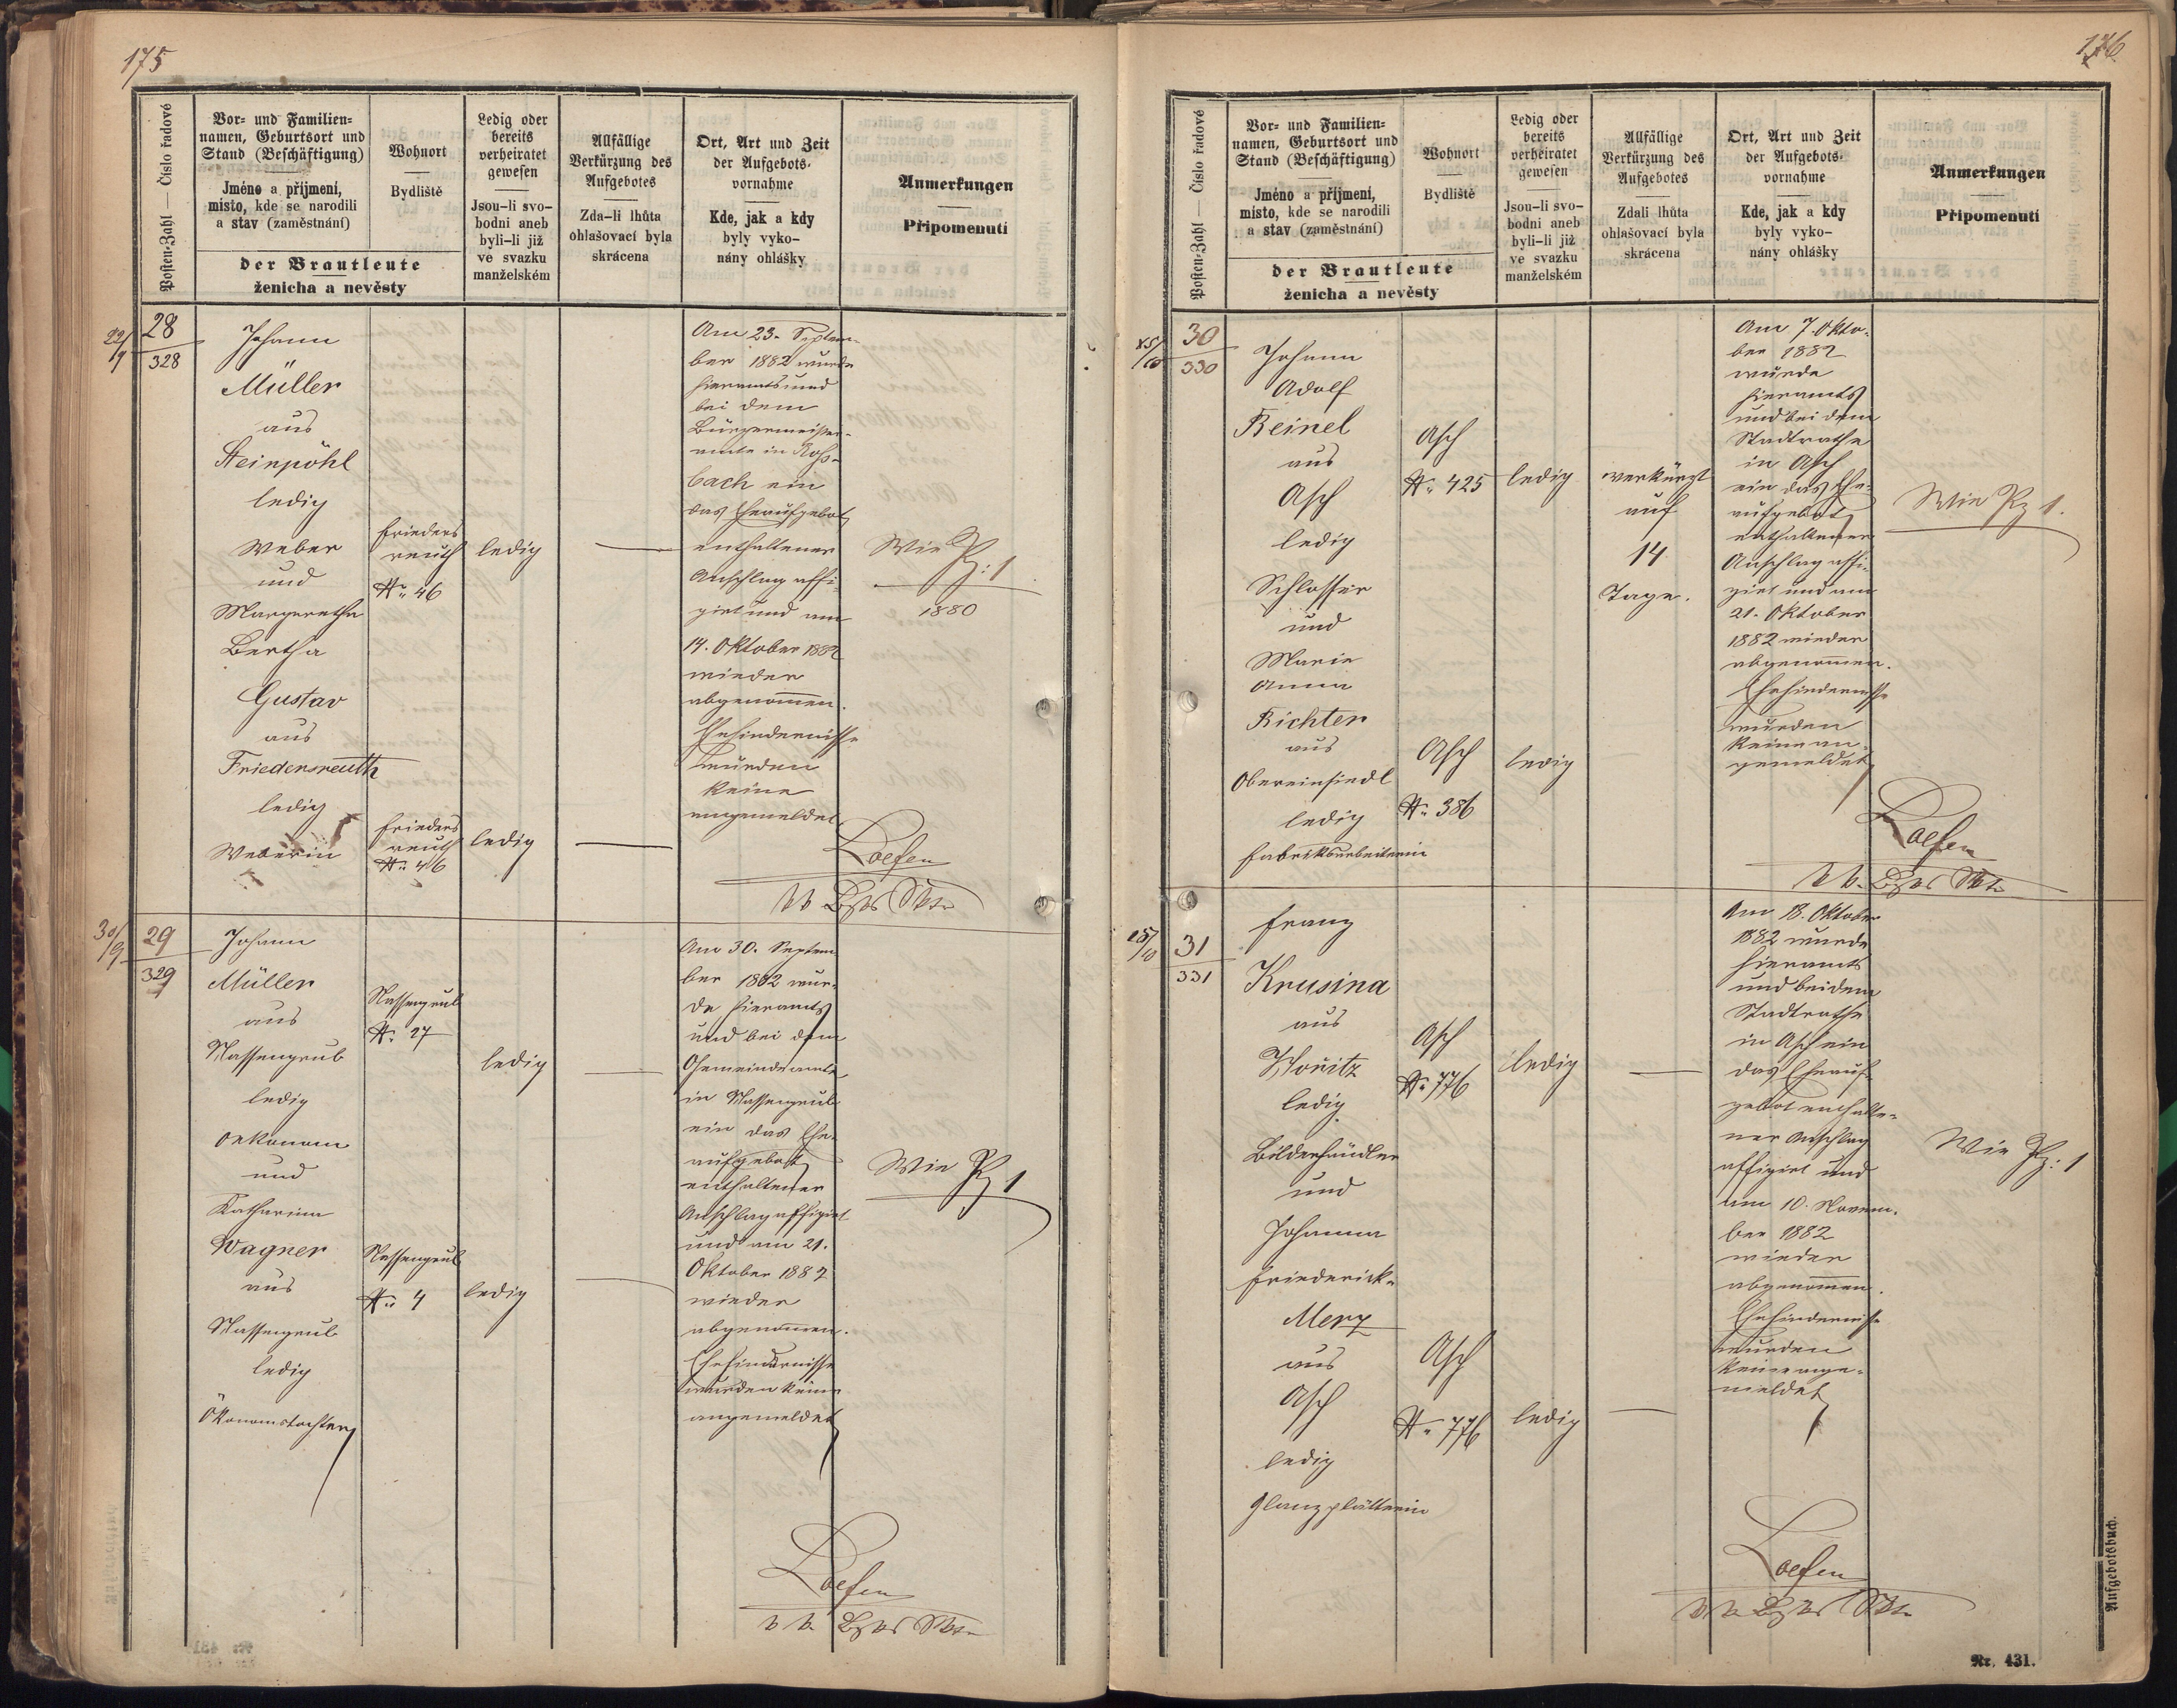 175
Posten-Zahl — Číslo řadové
Vor- und Familien-
namen, Geburtsort und
Stand (Beschäftigung)
Jméno a příjmení,
místo, kde se narodili
a stav (zaměstnání)
Wohnort
Bydliště
der Brautleute
ženicha a nevěsty
Ledig oder
bereits
verheiratet
gewesen
Jsou-li svo-
bodni aneb
byli-li již
ve svazku
manželském
Allfällige
Verkürzung des
Aufgebotes
Zda-li lhůta
ohlašovací byla
skrácena
Ort, Art und Zeit
der Aufgebots-
vornahme
Kde, jak a kdy
byly vyko-
nány ohlášky
Anmerkungen
Připomenutí
22/9
28
328
Johann
Müller
aus
Steinpöhl
ledig
Weber
und
Margaretha
Bertha
Gustav
aus
Friedersreuth
ledig
Weberin
Frieders
reuth
No 46
Frieders
reuth
No 46
ledig
ledig
Am 23. Septem-
ber 1882 wurde
hieramts und
bei dem
Bürgermeister-
amte in Roß-
bach ein
das Eheaufgebot
enthaltener
Anschlag affi-
girt und am
14. Oktober 1882
wieder
abgenommen.
Ehehindernisse
wurden
keine
angemeldet
Wie Pz: 1
1880
30/9
29
329
Johann
Müller
aus
Nassengrub
ledig
Oekonom
und
Katharina
Wagner
aus
Nassengrub
ledig
Ökonomstochter
Nassengrub
No 27
Nassengrub
No 4
ledig
ledig
Am 30. Septem
ber 1882 wur-
de hieramts
und bei dem
Gemeindeamte
in Nassengrub
ein das Ehe-
aufgebot
enthaltener
Anschlag affigirt
und am 21.
Oktober 1882
wieder
abgenommen.
Ehehindernisse
wurden keine
angemeldet
Wie Pz 1
176
Posten-Zahl — Číslo řadové
Vor- und Familien-
namen, Geburtsort und
Stand (Beschäftigung)
Jméno a příjmení,
místo, kde se narodili
a stav (zaměstnání)
Wohnort
Bydliště
der Brautleute
ženicha a nevěsty
Ledig oder
bereits
verheiratet
gewesen
Jsou-li svo-
bodni aneb
byli-li již
ve svazku
manželském
Allfällige
Verkürzung des
Aufgebotes
Zdali lhůta
ohlašovací byla
skrácena
Ort, Art und Zeit
der Aufgebots-
vornahme
Kde, jak a kdy
byly vyko-
nány ohlášky
Anmerkungen
Připomenutí
30
330
Johann
Adolf
Beinel
aus
Asch
ledig
Schlosser
und
Marie
Anna
Richter
aus
Obereinsiedl
ledig
Fabriksarbeiterin
Asch
No 425
Asch
No 386
ledig
ledig
verkürzt
auf
14
Tage.
Am 7. Okto-
ber 1882
wurde
hieramts
und bei dem
Stadtrathe
in Asch
ein das Ehe-
aufgebot
enthaltener
Anschlag affi-
girt und am
21. Oktober
1882 wieder
abgenommen.
Ehehindernisse
wurden
keine an-
gemeldet
Wie Pz 1.
31
331
Franz
Krusina
aus
ledig
Bilderhändler
und
Johanna
Friederick
Merz
aus
Asch
ledig
Glanzplätterin
Asch
No 776
Asch
No 776
ledig
ledig
Am 18. Oktober
1882 wurde
hieramts
und bei dem
Stadtrathe
in Asch ein
das Eheauf-
gebot enthalte-
ner Anschlag
affigirt und
am 10. Novem-
ber 1882
wieder
abgenommen.
Ehehindernisse
wurden
keine ange-
meldet
Wie Pz: 1
Aufgebotsbuch.
Nr. 431.